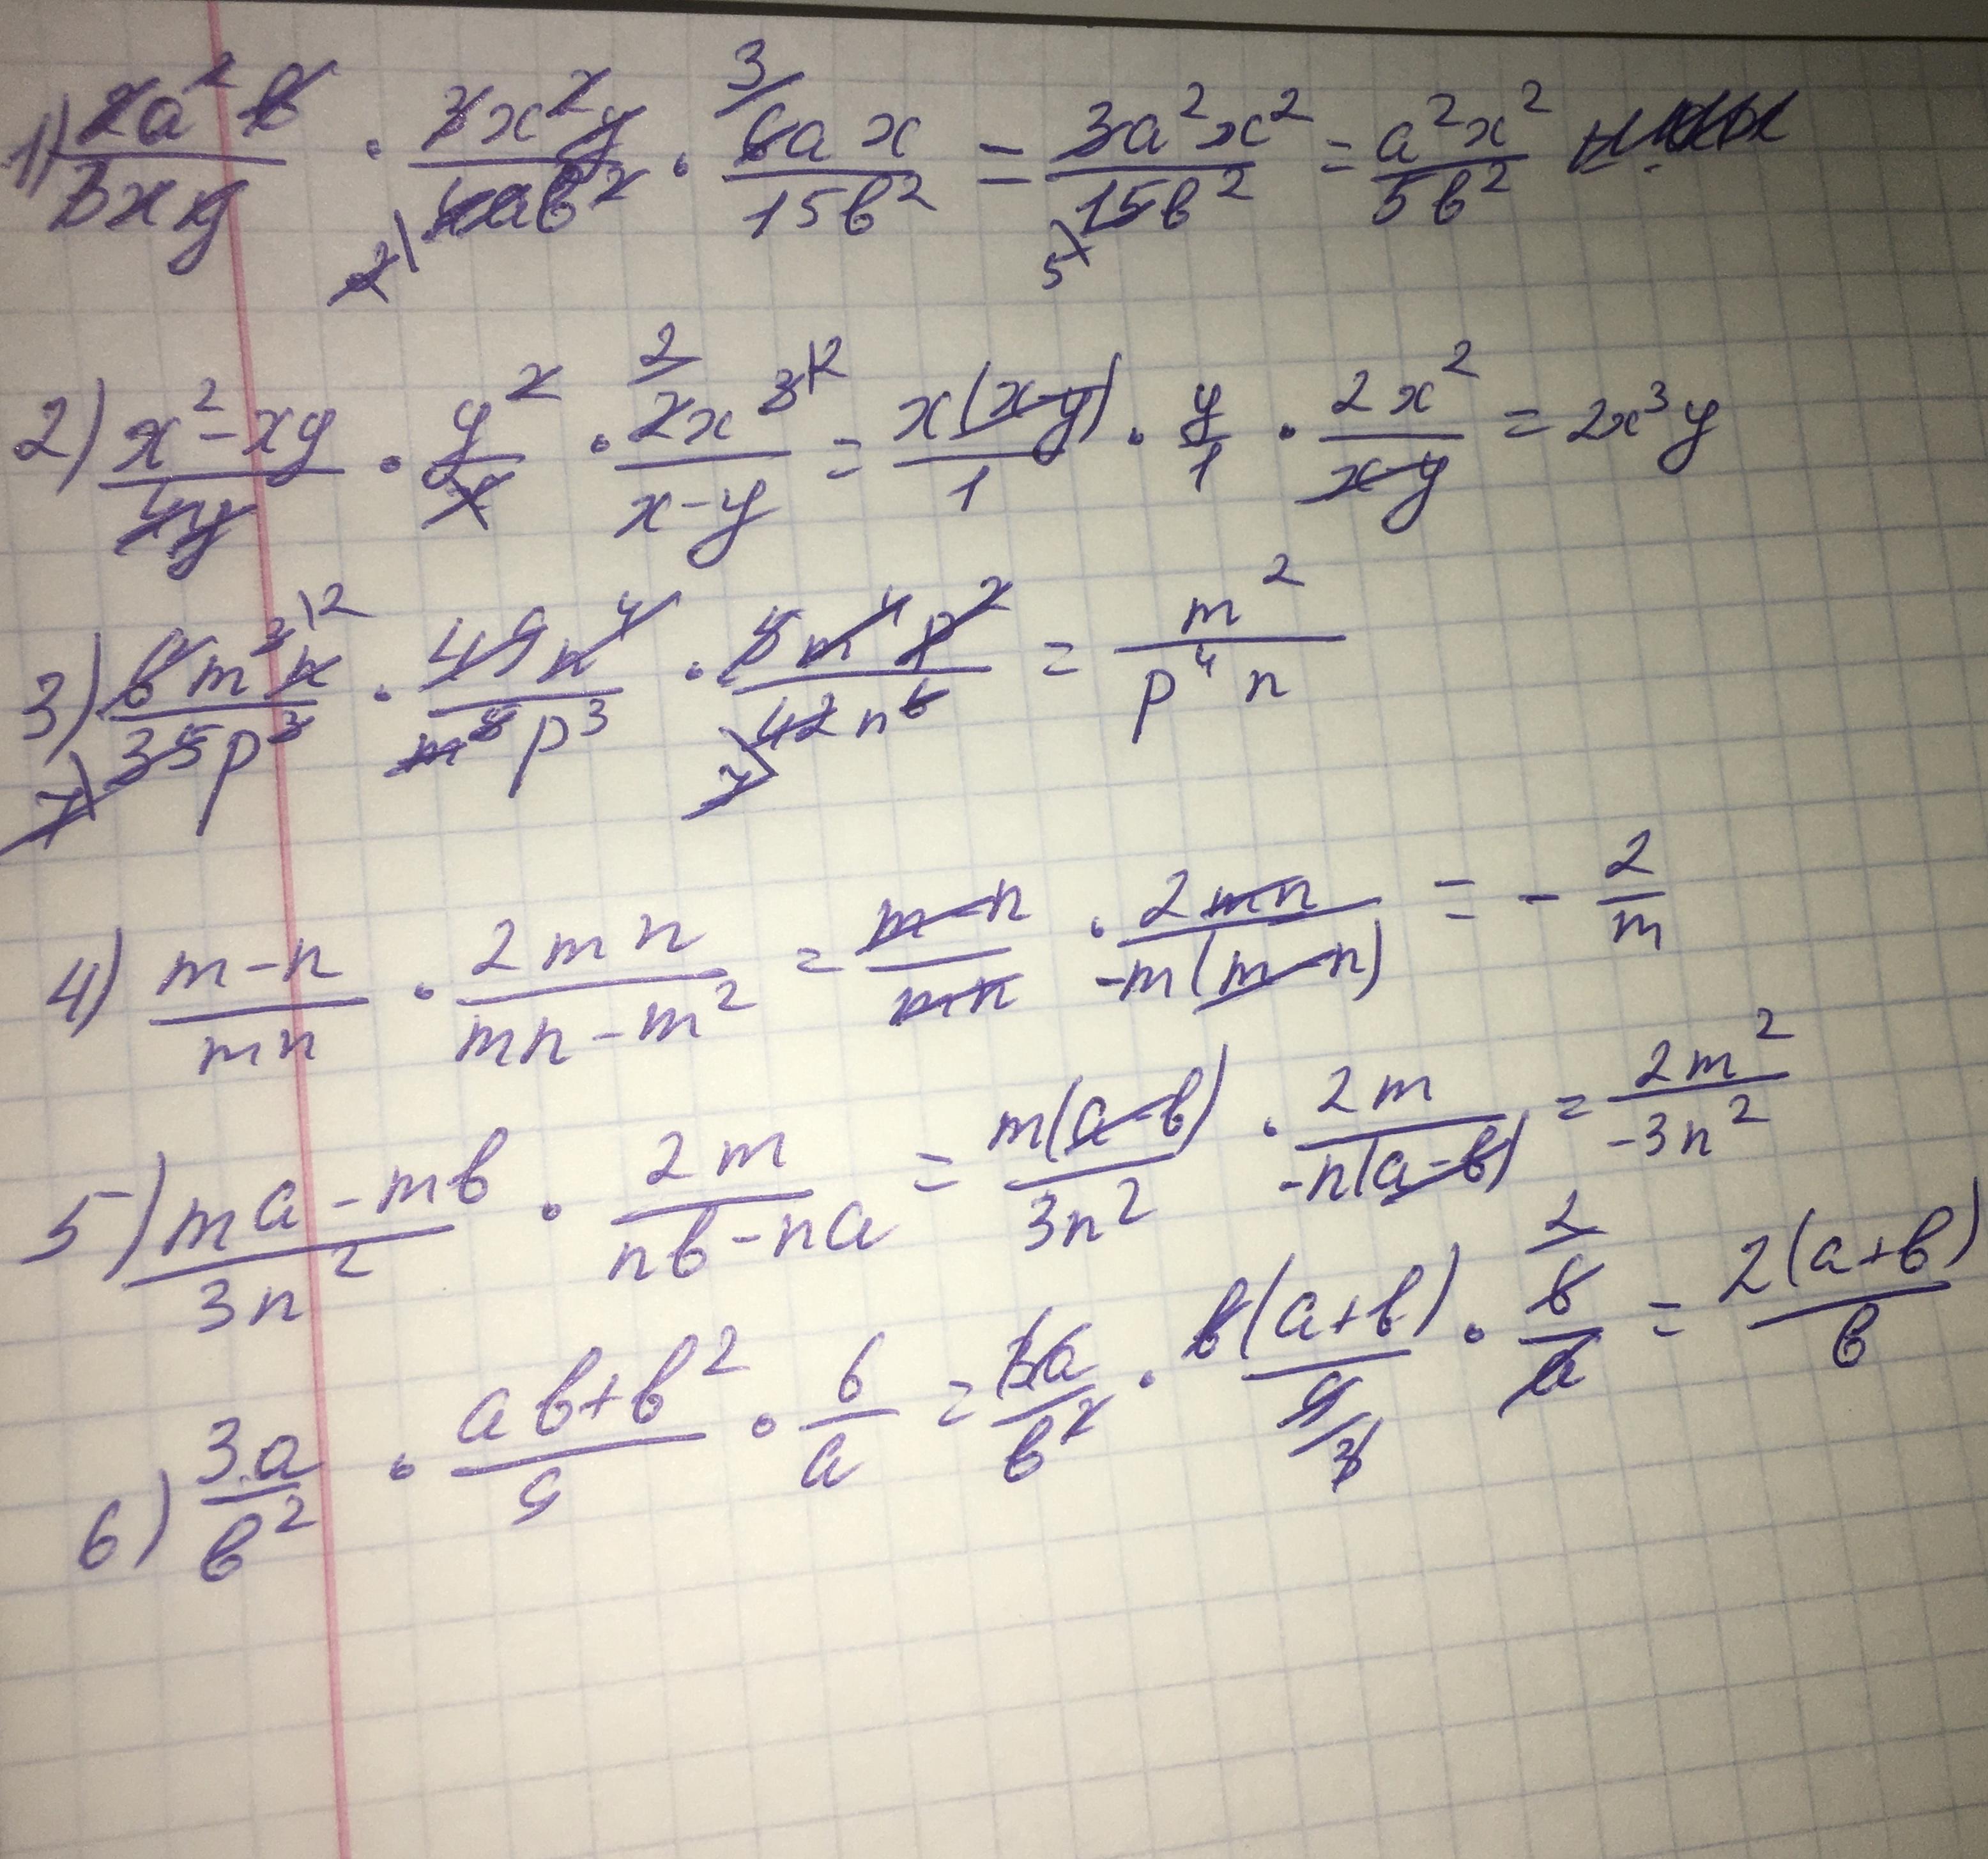 1) 2a²b/3xy · 3x²y/4ab² · 6ax/15b² = 3a²x²/15b² = a²x²/5b²
2) x²-xy/4y · y²/x · 2x³/x-y = x(x-y)/1 · y/1 · 2x²/x-y = 2x³y
3) 6m³n/35p³ · 49n⁴/m⁵p³ · 5m⁴p²/42n⁶ = m²/p⁴n
4) m-n/mn · 2mn/mn-m² = m-n/mn · 2mn/-m(m-n) = - 2/m
5) ma-mb/3n² · 2m/nb-na = m(a-b)/3n² · 2m/-n(a-b) = 2m²/-3n²
6) 3a/b² · ab+b²/9 · 6/a = 3a/b² · b(a+b)/9 · 6/a = 2(a+b)/b